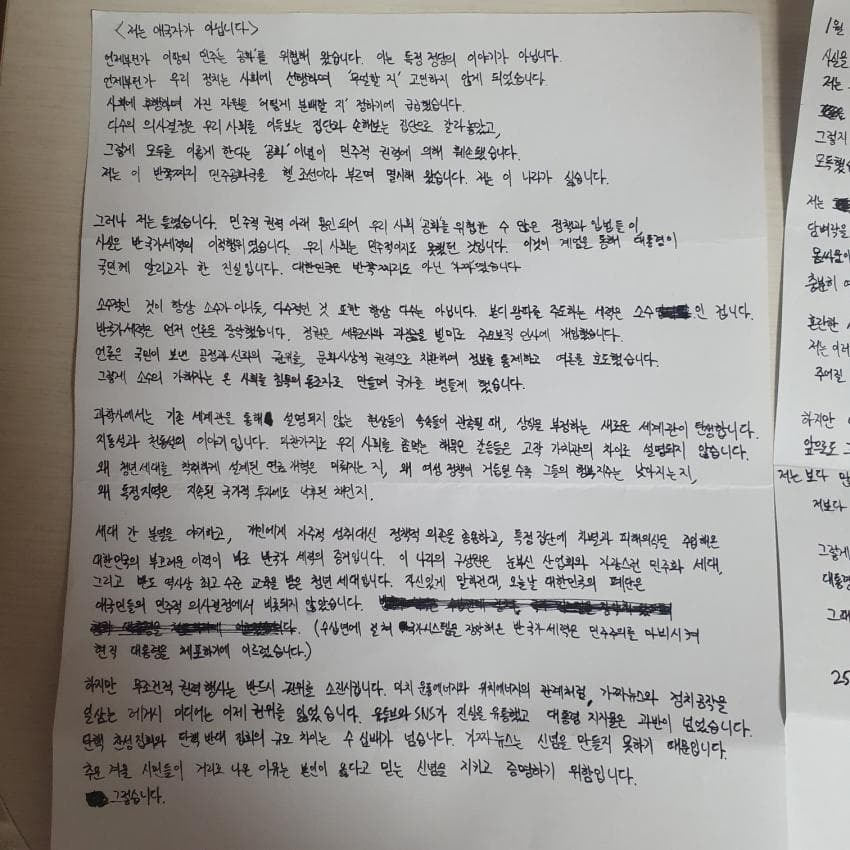 <저는 애국자가 아닙니다>
언제부턴가 이땅의 민주는 '공화'를 위협해 왔습니다. 이는 특정 정당의 이야기가 아닙니다.
언제부턴가 우리 정치는 사회에 선행하며 '무엇할 지' 고민하지 않게 되었습니다.
사회에 후행하며 가진 자원을 '어떻게 분배할 지' 정하기에 급급했습니다.
다수의 의사결정은 우리 사회를 이득보는 집단과 손해보는 집단으로 갈라놓았고,
그렇게 모두를 이롭게 한다는 '공화' 이념이 민주적 권력에 의해 훼손됐습니다.
저는 이 반쪽짜리 민주공화국을 헬조선이라 부르며 멸시해 왔습니다. 저는 이 나라가 싫습니다.
그러나 저는 틀렸습니다. 민주적 권력 아래 용인되어 우리 사회 '공화'를 위협한 수 많은 정책과 입법들이,
사실은 반국가세력의 이적행위였습니다. 우리 사회는 민주적이지도 못했던 것입니다. 이것이 계엄을 통해 대통령이
국민께 알리고자 한 진실입니다. 대한민국은 반쪽짜리도 아닌 '가짜'였습니다
소수적인 것이 항상 소수가 아니듯, 다수적인 것 또한 항상 다수는 아닙니다. 본디 왕따를 주도하는 세력은 소수인 겁니다.
반국가세력은 먼저 언론을 장악했습니다. 정권은 세무조사와 과징금을 빌미로 주요보직 인사에 개입했습니다.
언론은 국민이 보낸 공정과 신뢰의 권위를, 문화사상적 권력으로 치환하여 정보를 통제하고 여론을 호도했습니다.
그렇게 소수의 가해자는 온 사회를 침묵의 동조자로 만들며 국가를 병들게 했습니다.
과학사에서는 기존 세계관을 통해 설명되지 않는 현상들이 속속들이 관측될 때, 상식을 부정하는 새로운 세계관이 탄생합니다.
지동설과 천동설의 이야기입니다. 마찬가지로 우리 사회를 좀먹는 해묵은 갈등들은 고작 가치관의 차이로 설명되지 않습니다.
왜 청년세대를 착취하게 설계된 연금 개혁은 미뤄지는 지, 왜 여성 정책이 거듭될 수록 그들의 행복지수는 낮아지는지,
왜 특정지역은 지속된 국가적 투자에도 낙후된 채인지.
세대 간 분열을 야기하고, 개인에게 자주적 성취대신 정책적 의존을 종용하고, 특정 집단에 차별과 피해의식을 주입해온
대한민국의 부끄러운 이력이 바로 반국가 세력의 증거입니다. 이 나라의 구성원은 눈부신 산업화와 자랑스런 민주화 세대,
그리고 반도 역사상 최고 수준 교육을 받은 청년 세대입니다. 자신있게 말하건대, 오늘날 대한민국의 폐단은
애국민들의 민주적 의사결정에서 비롯되지 않았습니다.
(수십년에 걸쳐 국가시스템을 장악해온 반국가세력은 민주주의를 마비시켜
현직 대통령을 체포하기에 이르렀습니다.)
하지만 무조건적 권력행사는 반드시 권위를 소진시킵니다. 마치 운동에너지와 위치에너지의 관계처럼, 가짜뉴스와 정치공작을
일삼는 레거시 미디어는 이제 권위를 잃었습니다. 유튜브와 SNS가 진실을 유통했고 대통령 지지율은 과반이 넘었습니다.
탄핵 찬성집회와 탄핵 반대 집회의 규모 차이는 수 십배가 넘습니다. 가짜뉴스는 신념을 만들지 못하기 때문입니다.
추운 겨울 시민들이 거리로 나온 이유는 본인이 옳다고 믿는 신념을 지키고 증명하기 위함입니다.
그렇습니다.
1월
사실을
저는
그렇지
모독했습
저는
담벼락을
몸싸움이
충분히 여
혼란한 시
저는 이러
주어질
하지만 이
앞으로 그
저는 보다 많
저보다
그렇게
대통령
그때
25